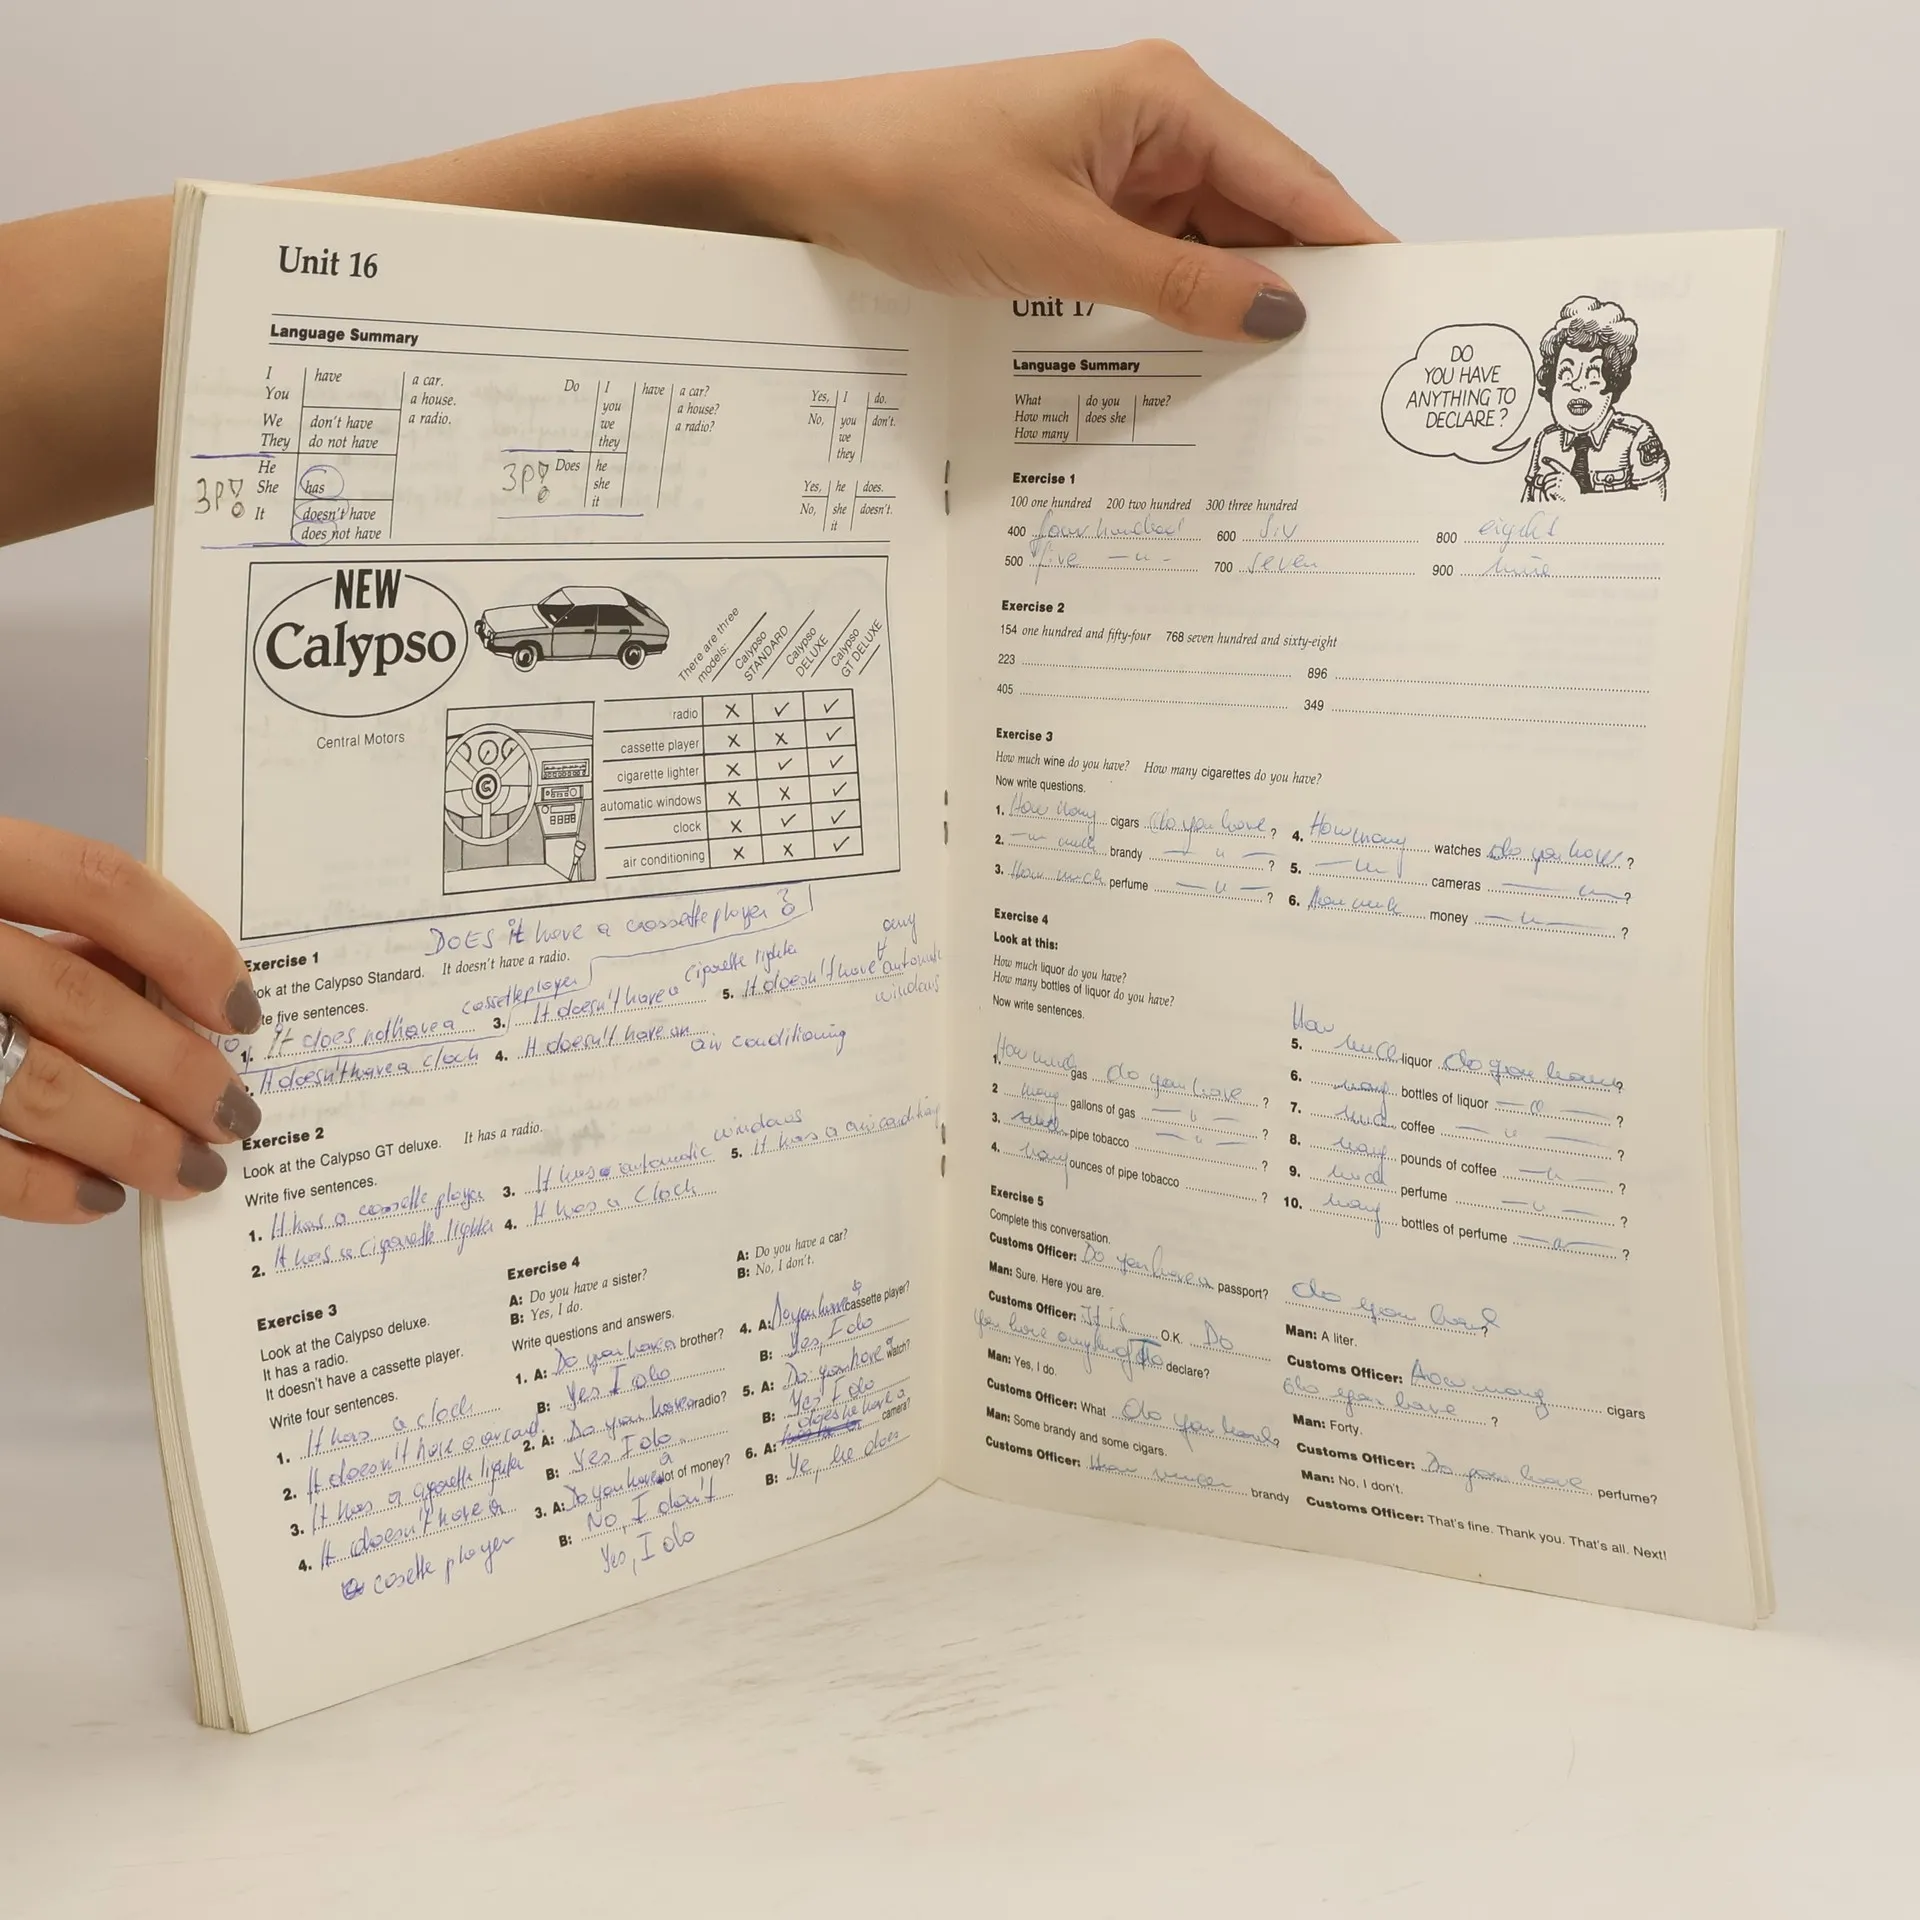 Unit 16
Language Summary
I have a car.
You a house.
We don't have a radio.
They do not have
He
She has
It doesn't have
does not have
3P!
Do I have a car?
you a house?
we a radio?
they
Does he
she
it
3P!
Yes, I do.
No, you don't.
we
they
Yes, he does.
No, she doesn't.
it
NEW
Calypso
Central Motors
There are three
models:
Calypso
STANDARD
Calypso
DELUXE
Calypso
GT DELUXE
radio X ✓ ✓
cassette player X X ✓
cigarette lighter X ✓ ✓
automatic windows X X ✓
clock X ✓ ✓
air conditioning X X ✓
DOES it have a cassette player?
Exercise 1
ok at the Calypso Standard. It doesn't have a radio.
te five sentences.
1. It does not have a cassette player
. It doesn't have a clock
3. It doesn't have a cigarette lighter
4. It doesn't have an air conditioning
5. It doesn't have any automatic windows
Exercise 2
Look at the Calypso GT deluxe. It has a radio.
Write five sentences.
1. It has a cassette player
2. It has a cigarette lighter
3. It has automatic windows
4. It has a clock
5. It has a
Exercise 3
Look at the Calypso deluxe.
It has a radio.
It doesn't have a cassette player.
Write four sentences.
1. It has a clock
2. It doesn't have a
3. It has a cigarette lighter
4. It doesn't have a
cosette player
Exercise 4
A: Do you have a sister?
B: Yes, I do.
A: Do you have a car?
B: No, I don't.
Write questions and answers.
1. A: Do you have a brother?
B: Yes I do
2. A: Do you have a radio?
B: Yes I do
3. A: Do you have a lot of money?
B: No, I don't
Yes, I do
4. A: Do you have a cassette player?
B: Yes, I do
5. A: Do you have a watch?
B: Yes I do
6. A: does he have a camera?
B: Ye, he does
Unit 17
DO
YOU HAVE
ANYTHING TO
DECLARE?
Language Summary
What do you have?
How much does she
How many
Exercise 1
100 one hundred 200 two hundred 300 three hundred
400 four hundred 600 six 800 eight
500 five — " - 700 seven 900 nine
Exercise 2
154 one hundred and fifty-four 768 seven hundred and sixty-eight
223 896
405 349
Exercise 3
How much wine do you have? How many cigarettes do you have?
Now write questions.
1. How many cigars do you have?
2. — " — much brandy — " — ?
3. How much perfume — " — ?
4. How many watches do you have?
5. — " — cameras — " — ?
6. How much money — " — ?
Exercise 4
Look at this:
How much liquor do you have?
How many bottles of liquor do you have?
Now write sentences.
1. How much gas do you have?
2 many gallons of gas — " — ?
3. much pipe tobacco — " — ?
4. many ounces of pipe tobacco ?
5. How much liquor do you have?
6. many bottles of liquor — " — ?
7. much coffee — " — ?
8. many pounds of coffee — " — ?
9. much perfume — " — ?
10. many bottles of perfume — " — ?
Exercise 5
Complete this conversation.
Customs Officer: Do you have a passport?
Man: Sure. Here you are.
Customs Officer: It is O.K. Do
you have anything to declare?
Man: Yes, I do.
Customs Officer: What do you have?
Man: Some brandy and some cigars.
Customs Officer: How much brandy
do you have?
Man: A liter.
Customs Officer: How many cigars
do you have ?
Man: Forty.
Customs Officer: Do you have perfume?
Man: No, I don't.
Customs Officer: That's fine. Thank you. That's all. Next!